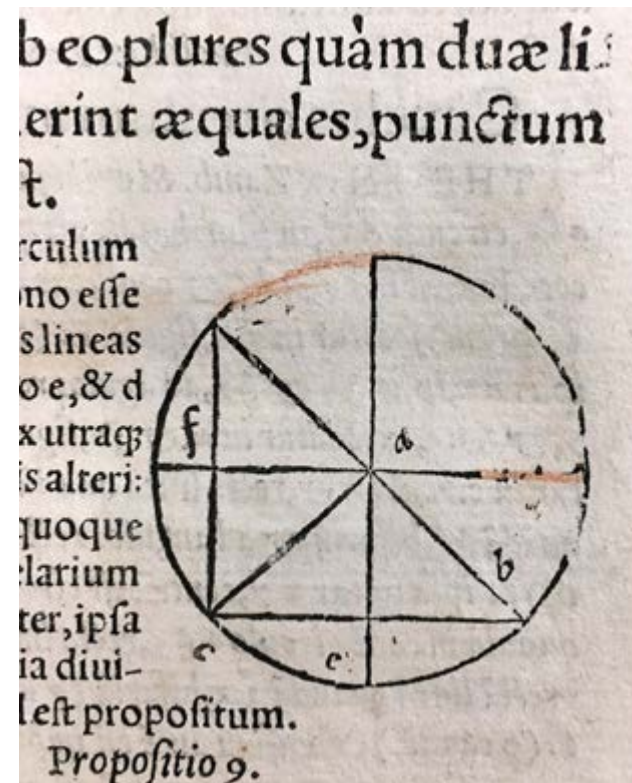 b eo plures quàm duæ li
erint æquales, punctum
ſt.
rculum
ono eſſe
s lineas
o e, & d
x utraqꝫ
is alteri:
quoque
elarium
ter, ipſa
ia diui-
l eſt propoſitum.
Propoſitio 9.
f
a
b
c
e